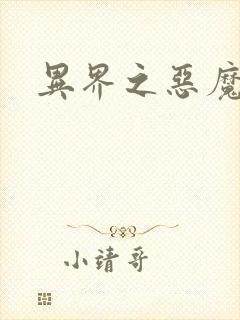 異界之惡魔
小靖哥